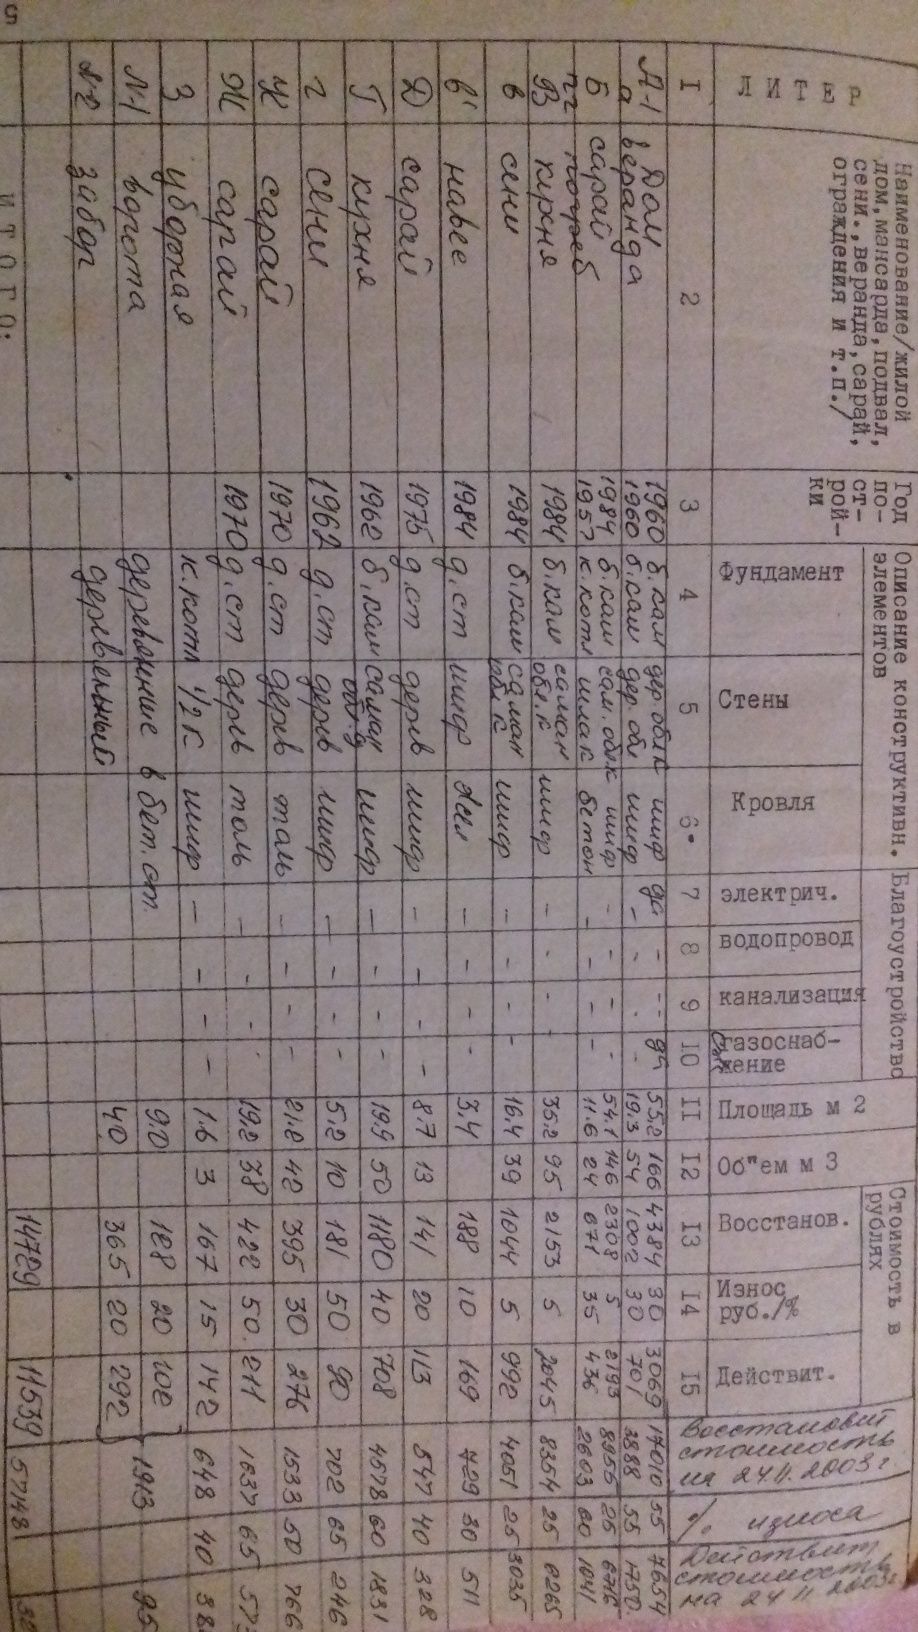 5
ЛИТЕР
Наименование/жилой
дом,мансарда,подвал,
сени.,веранда,сарай,
ограждения и т.п./
Год
по-
ст-
рой-
ки
Описание конструктивн.
элементов
Благоустройство
Стоимость в
рублях
Фундамент Стены Кровля электрич. водопровод канализация газоснаб-
жение
Площадь м 2 Об"ем м 3 Восстанов. Износ
руб./% Действит.
Восстановит
стоимость
на 24.11.2003г.
% износа
Действит
стоимость
на 24 11 2003г.
I 2 3 4 5 6 7 8 9 IO II I2 I3 I4 I5
А-1 Дом 1960 б.кам дер.облк шифр да - - да 55.2 166 4384 30 3069 17010 55 7654
а веранда 1960 б.кам дер.обл шифр - - - 19.3 54 1002 30 701 3888 55 1750
Б сарай 1984 б.кам сам.облк шифр - - - - 54.1 146 2308 5 2193 8955 25 6716
п/г погреб 1957 к.котл шлак бетон - - - - 11.6 24 671 35 436 2603 60 1041
В кухня 1984 б.кам саман
обл.к шифр - - - 35.2 95 2153 5 2045 8354 25 6265
в сени 1984 б.кам саман
обл.к шифр - - - - 16.4 39 1044 5 992 4051 25 3035
в' навес 1984 д.ст шифр - - - - 3.4 188 10 169 729 30 511
Д сарай 1975 д.ст дерев шифр - - - - 8.7 13 141 20 113 547 40 328
Г кухня 1962 б.кам саман
обл шифр - - - - 19.9 50 1180 40 708 4578 60 1831
г сени 1962 д.ст дерев шифр - - - - 5.2 10 181 50 90 702 65 246
И сарай 1970 д.ст дерев толь - - - - 21.8 42 395 30 276 1533 50 766
Ж сарай 1970 д.ст дерев толь - - - - 19.2 38 422 50 211 1637 65
З уборная к.котл 1/2 к шифр - - - - 1.6 3 167 15 142 648 40
N-1 ворота деревянные в бет.ст. 9.0 128 20 102 1913
N-2 забор деревянный 40 365 20 292
ИТОГО: 14729 11539 57148